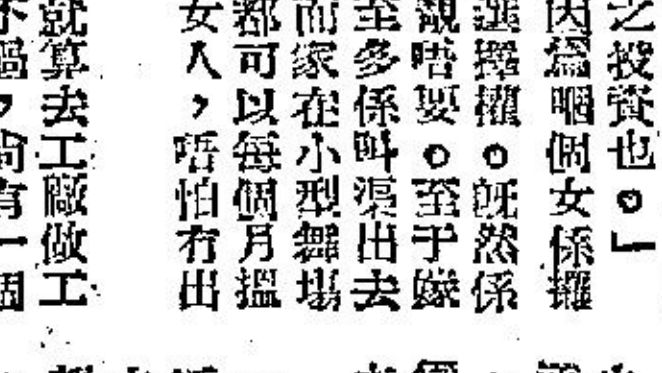 之投資也。」
因爲嗰個女係攞
選擇權。旣然係
靚唔要。至于嫁
至多係叫渠出去
而家在小型舞場
都可以每個月搵
女人，唔怕冇出
就算去工廠做工
，尚有一個